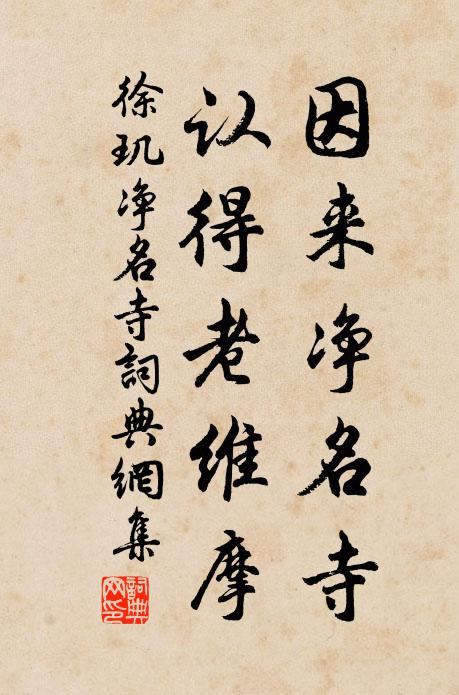 因来净名寺
认得老维摩
徐玑净名寺詞典網集
詞典网印